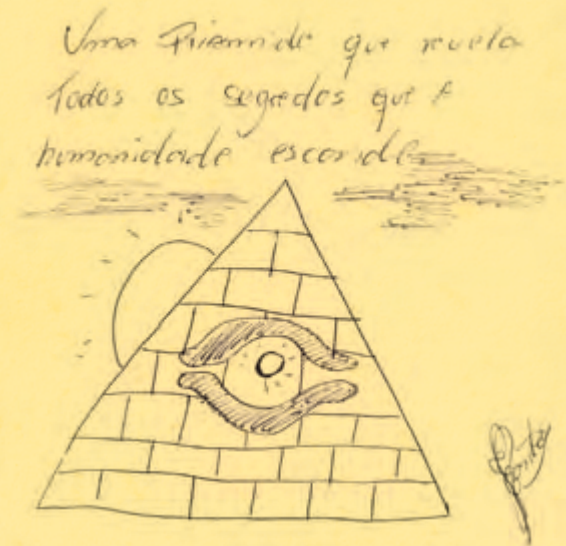 Uma Piramide que revela
Todos os segredos que A
humanidade esconde